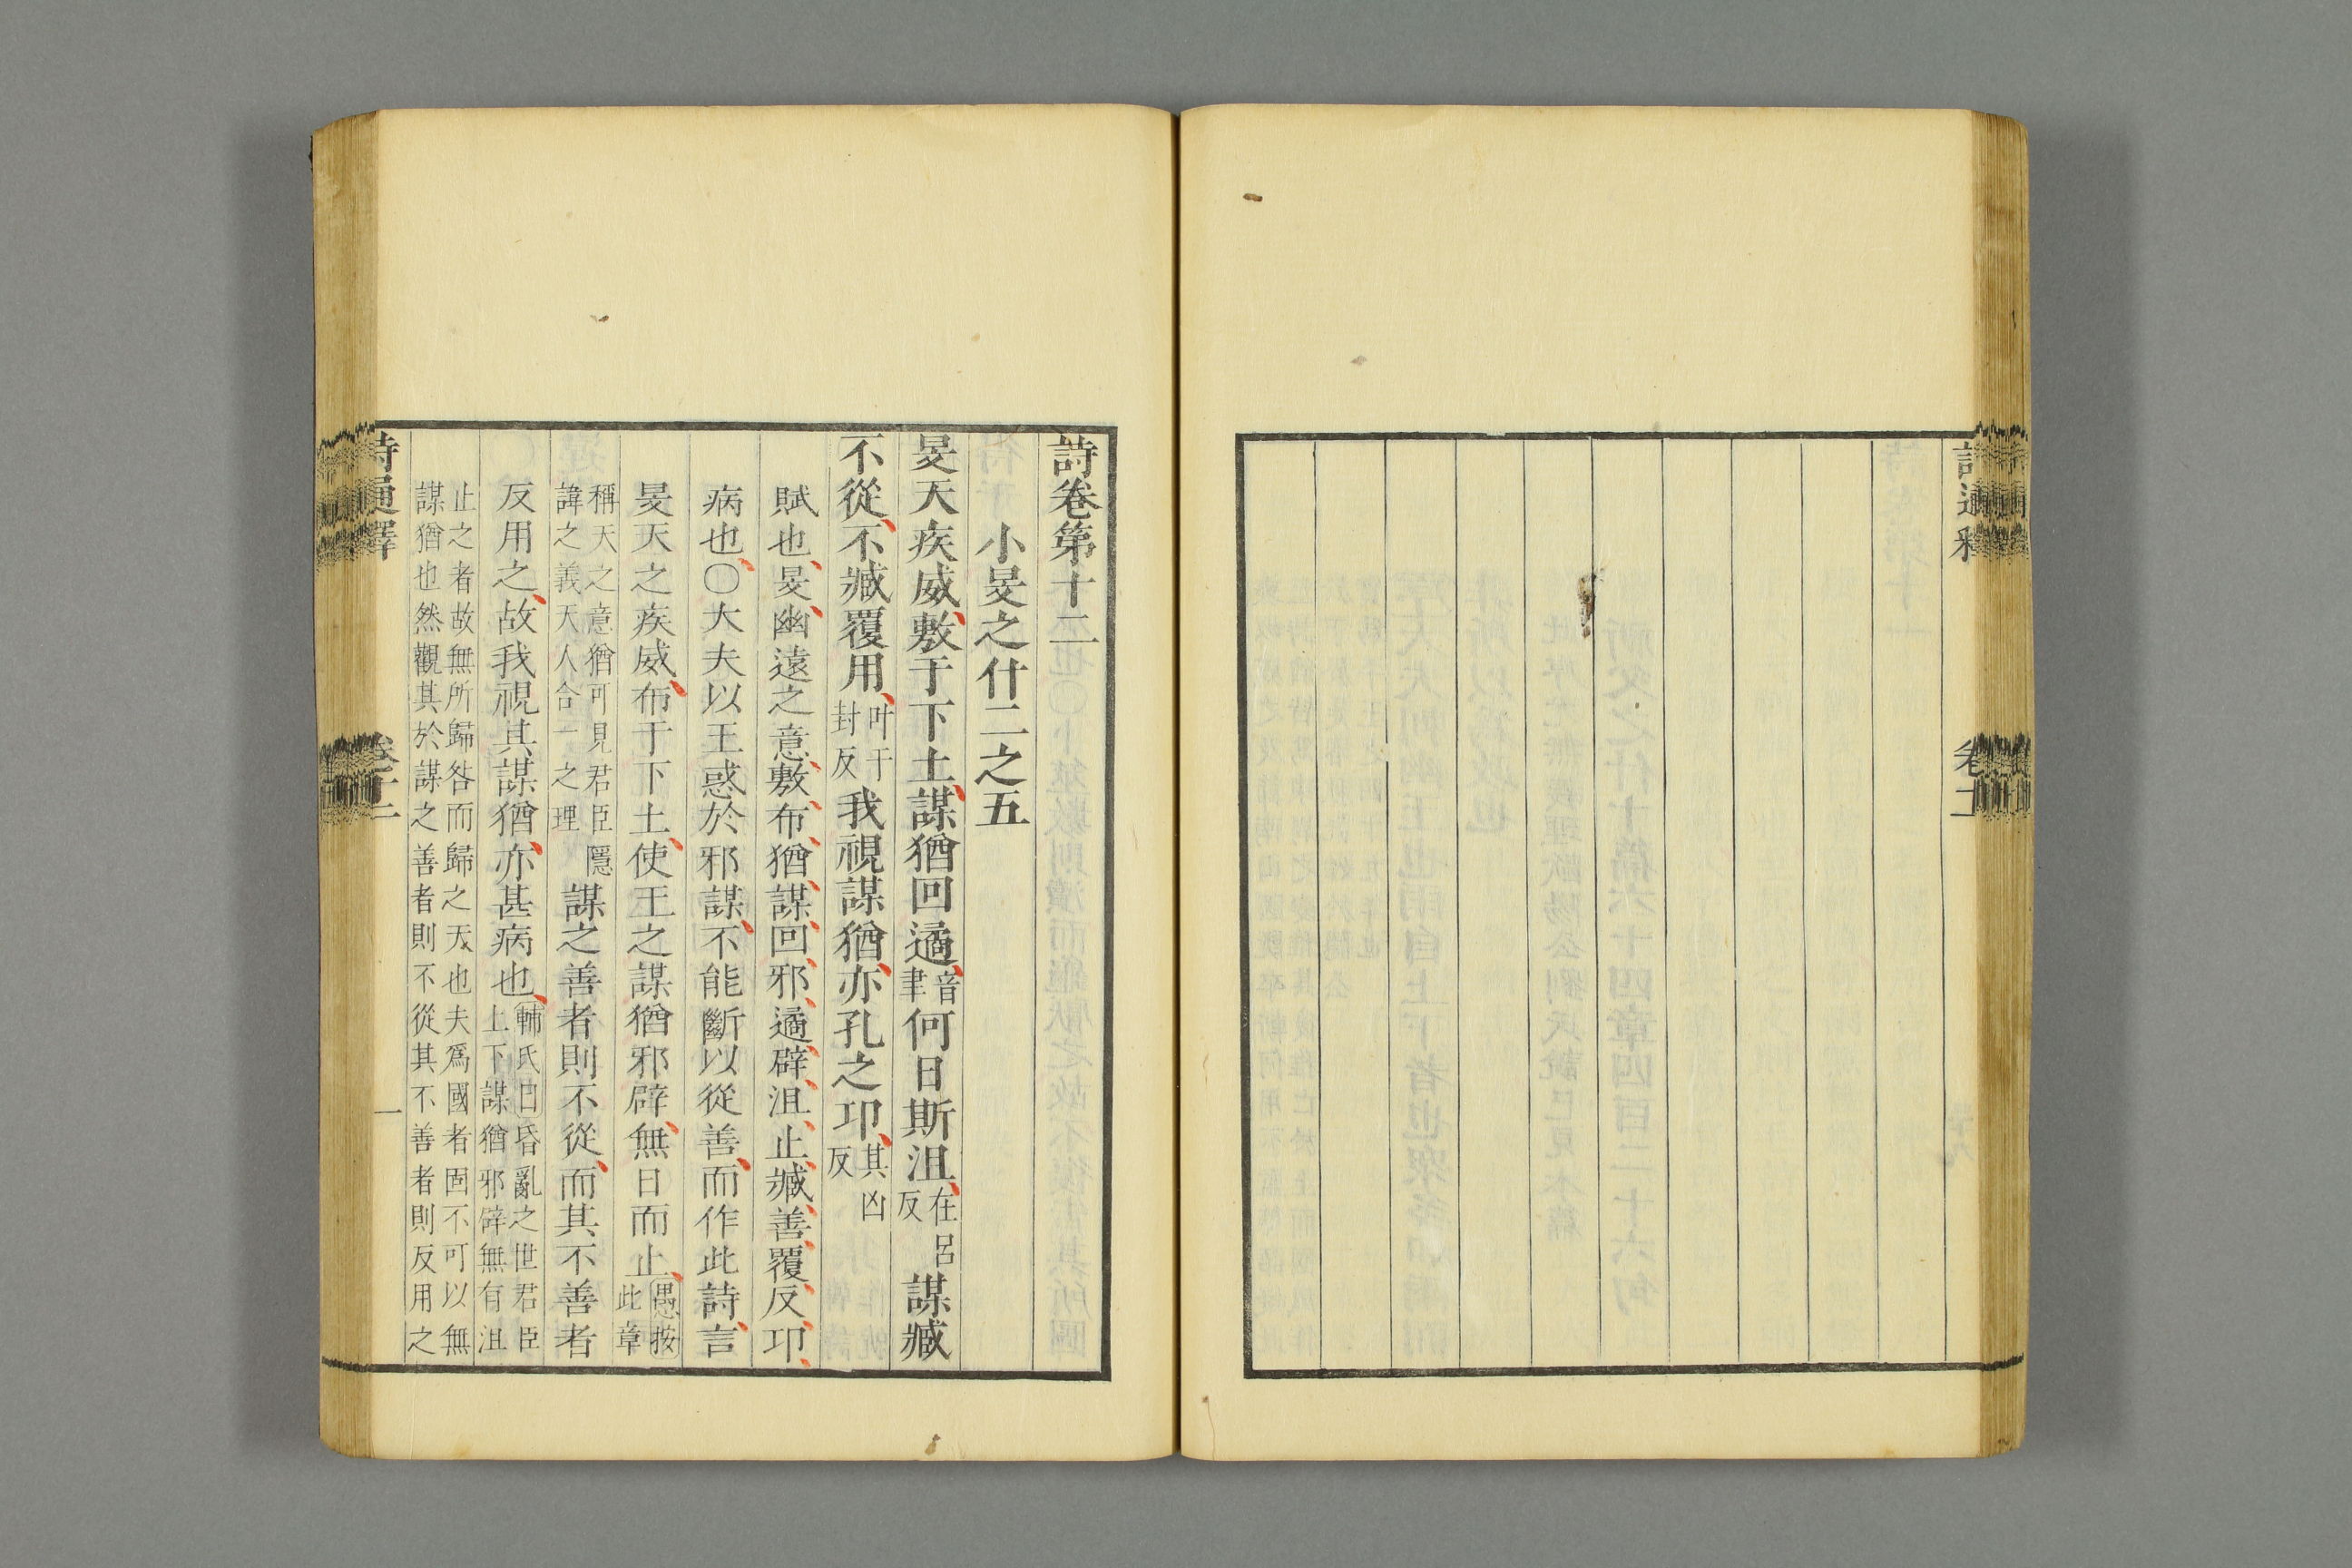 詩卷第十二
小旻之什二之五
旻天疾威敷于下土謀猶回遹音聿何日斯沮在呂反謀臧
不從不臧覆用叶于封反我視謀猶亦孔之邛其凶反
賦也旻幽遠之意敷布猶謀回邪遹辟沮止臧善覆反邛
病也〇大夫以王惑於邪謀不能斷以從善而作此詩言
旻天之疾威布于下土使王之謀猶邪辟無日而止愚按此章
稱天之意猶可見君臣隱諱之義天人合一之理謀之善者則不從而其不善者
反用之故我視其謀猶亦甚病也輔氏曰昏亂之世君臣上下謀猶邪辟無有沮
止之者故無所歸咎而歸之天也夫為國者固不可以無謀猶也然觀其於謀之善者則不從其不善者則反用之
詩通釋 卷十二 一